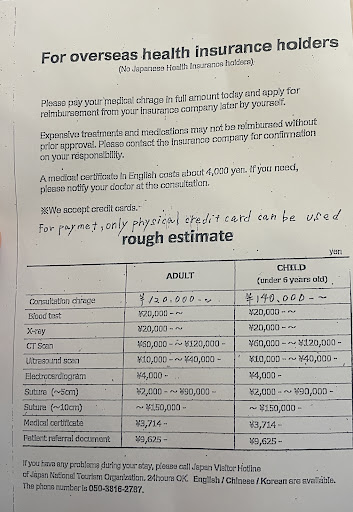 For overseas health insurance holders
(No Japanese Health Insurance holders)
Please pay your medical chrage in full amount today and apply for
reimbursement from your insurance company later by yourself.
Expensive treatments and medications may not be reimbursed without
prior approval. Please contact the insurance company for confirmation
on your responsibility.
A medical certificate in English costs about 4,000 yen. If you need,
please notify your doctor at the consultation.
※We accept credit cards.
For paymet, only physical credit card can be used
rough estimate
yen
ADULT CHILD (under 6 years old)
Consultation chrage ¥120.000-~ ¥140,000-~
Blood test ¥20,000-~ ¥20,000-~
X-ray ¥20,000-~ ¥20,000-~
CT Scan ¥60,000-~¥120,000- ¥60,000-~¥120,000-
Ultrasound scan ¥10,000-~¥40,000- ¥10,000-~¥40,000-
Electrocardiogram ¥4,000- ¥4,000-
Suture (~5cm) ¥2,000-~¥90,000- ¥2,000-~¥90,000-
Suture (~10cm) ~¥150,000- ~¥150,000-
Medical certificate ¥3,714- ¥3,714-
Patient referral document ¥9,625- ¥9,625-
If you have any problems during your stay, please call Japan Visitor Hotline
of Japan National Tourism Organization. 24hours OK English / Chinese / Korean are available.
The phone number is 050-3816-2787.